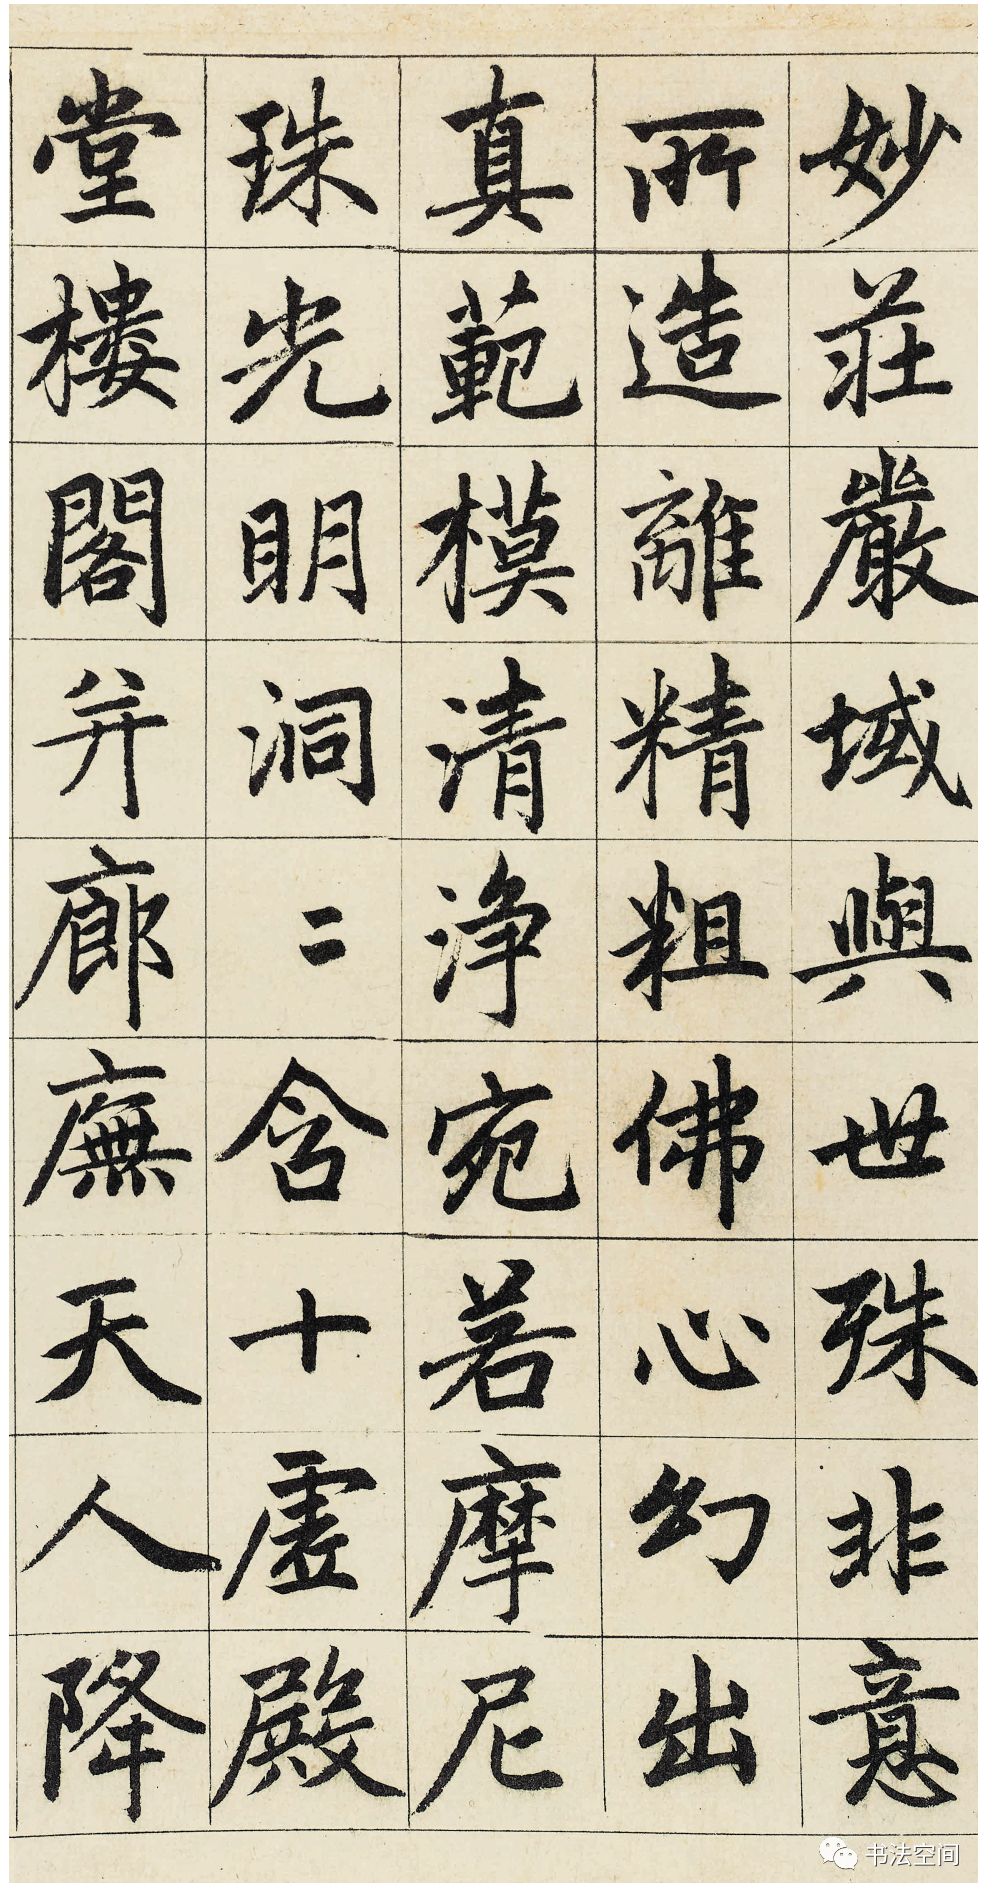 妙莊嚴域與世殊非意
所造離精粗佛心幻出
真範模清淨宛若摩尼
珠光明洞二含十虛殿
堂樓閣并廊廡天人降
书法空间